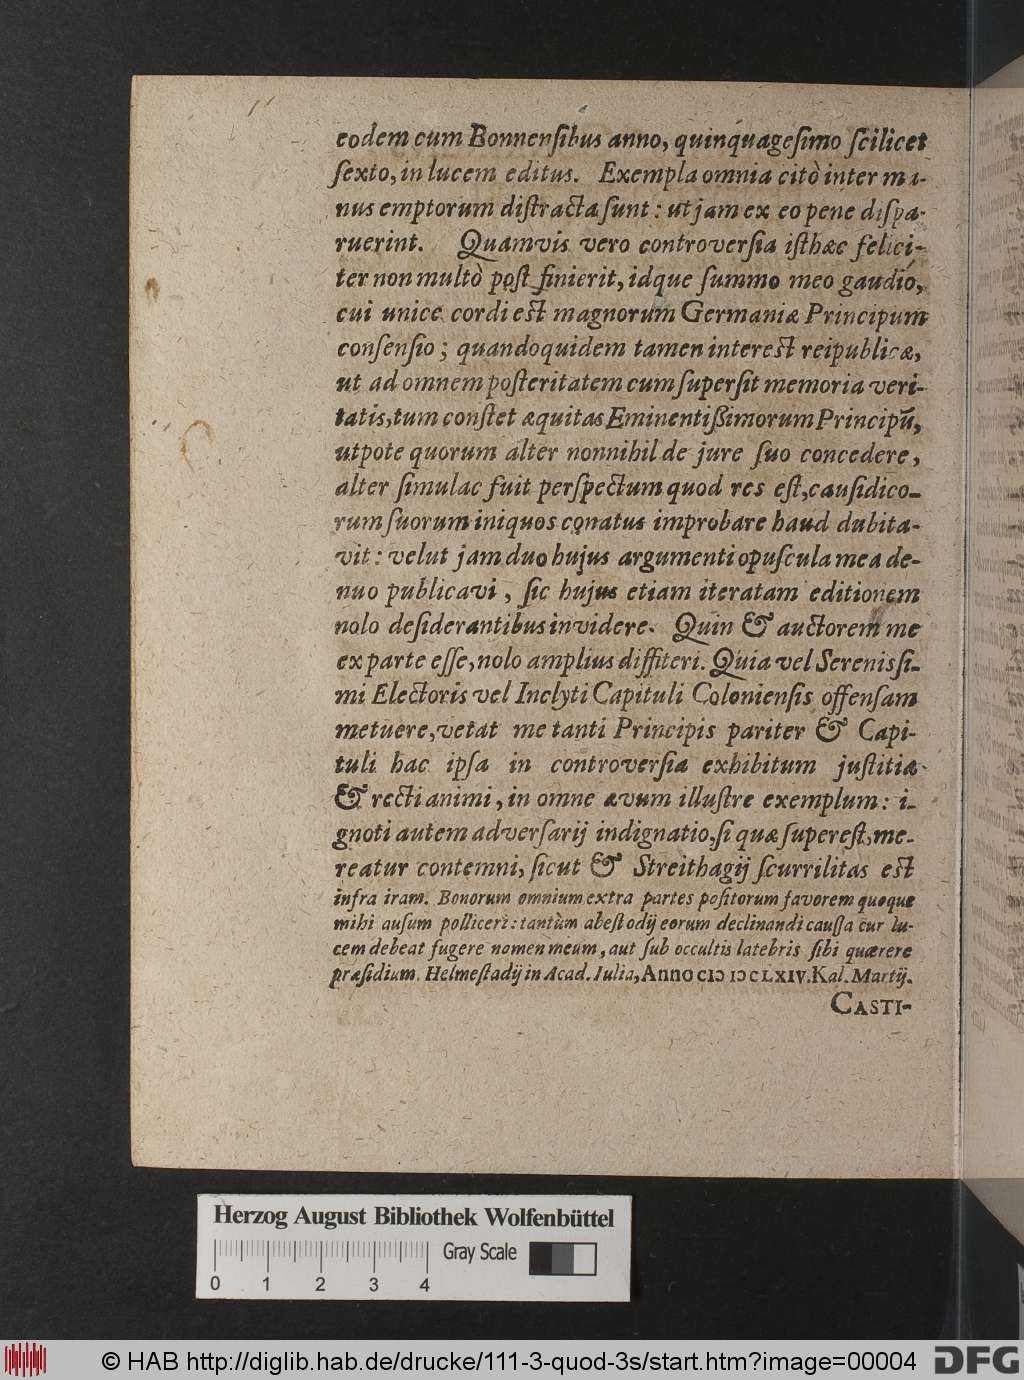 eodem cum Bonnenſibus anno, quinquageſimo ſcilicet
ſexto, in lucem editus. Exempla omnia citò inter ma-
nus emptorum diſtracta ſunt: ut jam ex eo pene diſpa-
ruerint. Quamvis vero controverſia iſthæc felici-
ter non multò poſt finierit, idque ſummo meo gaudio,
cui unice cordi eſt magnorum Germaniæ Principum
conſenſio; quandoquidem tamen intereſt reipublicæ,
ut ad omnem poſteritatem cum ſuperſit memoria veri-
tatis, tum conſtet æquitas Eminentiſſimorum Principū,
utpote quorum alter nonnihil de jure ſuo concedere,
alter ſimulac fuit perſpectum quod res eſt, cauſidico-
rum ſuorum iniquos conatus improbare haud dubita-
vit: velut jam duo hujus argumenti opuſcula mea de-
nuo publicavi, ſic hujus etiam iteratam editionem
nolo deſiderantibus invidere. Quin & auctorem me
ex parte eſſe, nolo amplius diffiteri. Quia vel Sereniſſi-
mi Electoris vel Inclyti Capituli Colonienſis offenſam
metuere, vetat me tanti Principis pariter & Capi-
tuli hac ipſa in controverſia exhibitum juſtitiæ
& recti animi, in omne ævum illuſtre exemplum: i-
gnoti autem adverſarij indignatio, ſi quæ ſupereſt, me-
reatur contemni, ſicut & Streithagij ſcurrilitas eſt
infra iram. Bonorum omnium extra partes poſitorum favorem quoque
mihi auſum polliceri: tantùm abeſt odij eorum declinandi cauſſa cur lu-
cem debeat fugere nomen meum, aut ſub occultis latebris ſibi quærere
præſidium. Helmeſtadij in Acad. Iulia, Anno CIↃ IↃCLXIV. Kal. Martij.
CASTI-
Herzog August Bibliothek Wolfenbüttel
Gray Scale
0 1 2 3 4
© HAB http://diglib.hab.de/drucke/111-3-quod-3s/start.htm?image=00004
DFG